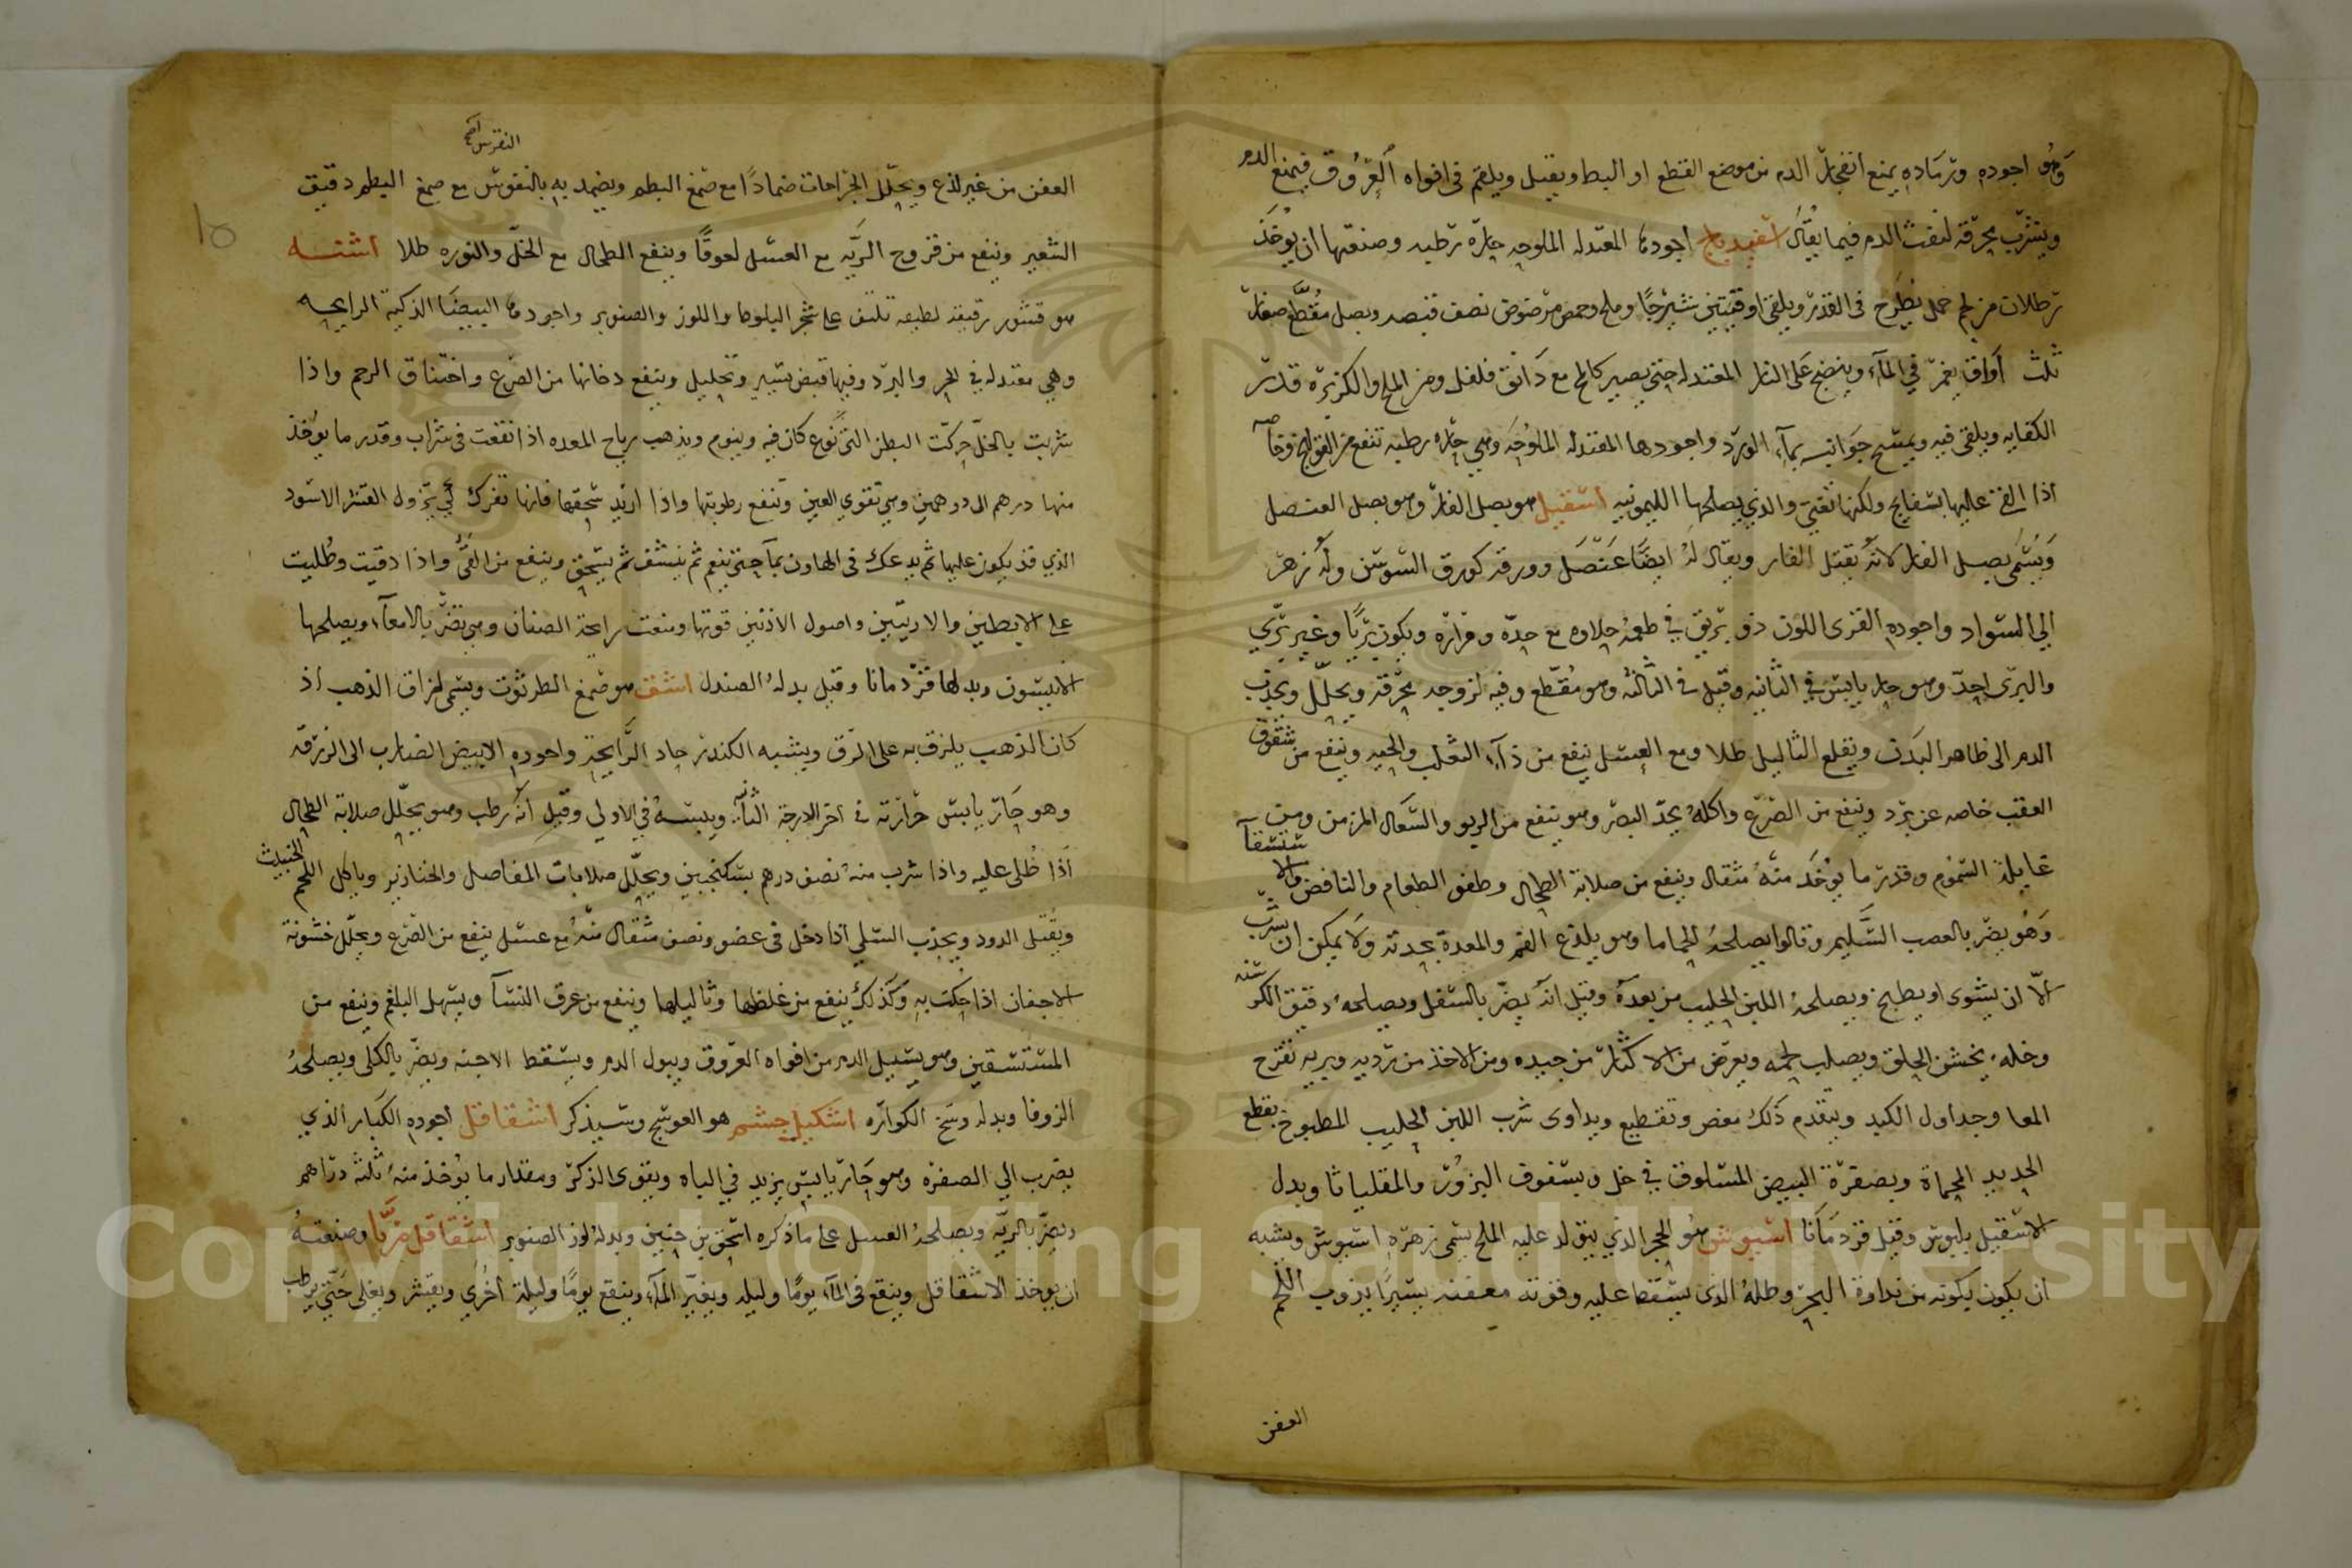 وهو اجوده ورماده يمنع انفجار الدم من موضع القطع او البط ويقتل ويلقم في افواه العروق فيمنع الدم
ويشرب محرقه لنفث الدم فيما يقال اسفيدباج اجودها المعتدله الملوحه حارة رطبه وصنعتها ان يوخذ
رطلان من لحم حمل يطرح في القدر ويلقي اوقيتين شيرجا وملح وحمص مرضوض نصف قبصه وبصل مقطع صغار
ثلث اواق يغمر في الماء وينضج على النار المعتدله حتى يصير كالمخ مع دانق فلفل ومن الملح والكزبره قدر
الكفايه ويلقى فيه ويمسح جوانبه بماء الورد واجودها المعتدله الملوحه وهي حاره رطبه تنفع من القولنج وخاصه
اذا القي عليها بسفايج ولكنها تغثي والذي يصلحها الليمونيه اسقيل هو بصل الفار وهو بصل العنصل
ويسمى بصل الفار لانه يقتل الفار ويقال له ايضا عنصل وورقه كورق السوسن وله زهر
الي السواد واجوده القزى اللون ذو بريق في طعمه حلاوه مع حده ومراره ويكون بريا وغير بري
والبرى احد وهو حار يابس في الثانيه وقيل في الثالثه وهو مقطع وفيه لزوجه محرقه ويحلل ويجذب
الدم الى ظاهر البدن ويقلع الثاليل طلا ومع العسل ينفع من داء الثعلب والحيه وينفع من شقوق
العقب خاصه عن برد وينفع من الصرع واكله يحد البصر وهو ينفع من الربو والسعال المزمن ومن
غايلة السموم وقدر ما يوخذ منه مثقال وينفع من صلابة الطحال وطفو الطعام والنافض والاستسقاء
وهو يضر بالعصب السليم وقالوا يصلحه الحماما وهو يلذع الفم والمعدة بحدته ولا يمكن ان يشرب
الا ان يشوى او يطبخ ويصلحه اللبن الحليب من بعده وقيل انه يضر بالسفل ويصلحه دقيق الكرسنه
وخله يخشن الحلق ويصلب لحمه ويعرض من الاكثار من جيده ومن الاخذ من رديه وبريه تقرح
المعا وجداول الكبد ويتقدم ذلك مغص وتقطيع ويداوى شرب اللبن الحليب المطبوخ بقطع
الحديد المحماة وبصفرة البيض المسلوق في خل وبسفوف البزور والمقلياثا وبدل
الاسقيل بلبوس وقيل قردمانا اسيوس هو الحجر الذي يتولد عليه الملح يسمى زهره اسيوس ويشبه
ان يكون تكونه من نداوة البحر وطله الذي يسقط عليه وقوته معفنه يسيرا يذوب اللحم
العفن
النقرس صح
العفن من غير لذع ويحلل الجراحات ضمادا مع صمغ البطم ويضمد به بالنقرس مع صمغ البطم دقيق
الشعير وينفع من قروح الريه مع العسل لعوقا وينفع الطحال مع الخل والنوره طلا اشنه
هو قشور رقيقه لطيفه تلتف على شجر البلوط واللوز والصنوبر واجودها البيضا الذكية الرايحه
وهي معتدله في الحر والبرد وفيها قبض يسير وتحليل وينفع دخانها من الصرع واختناق الرحم واذا
شربت بالخل حركت البطن الذي نوع كان فيه وينوم ويذهب رياح المعده اذا انقعت في شراب وقدر ما يوخذ
منها درهم الى درهمين وهي تقوي العين وتنفع رطوبتها واذا اريد سحقها فانها تفرك كي يزول القشر الاسود
الذي قد يكون عليها ثم يدعك في الهاون بماء حتى ينعم ثم ينشف ثم يسحق وينفع من القي واذا دقت وطليت
على الابطين والاربيتين واصول الاذنين قوتها ومنعت رايحة الصنان وهي تضر بالامعاء ويصلحها
الانيسون وبدلها قردمانا وقيل بدله الصندل اشق هو صمغ الطرثوث ويسمى لزاق الذهب اذ
كان الذهب يلزق به على الرق ويشبه الكندر حاد الرايحة واجوده الابيض الضارب الى الزرقه
وهو حار يابس حرارته في اخر الدرجة الثانيه ويبسه في الاولى وقيل انه رطب وهو يحلل صلابة الطحال
اذا طلى عليه واذا شرب منه نصف درهم بسكنجبين ويحلل صلابات المفاصل والخنازير وياكل اللحم الخبيث
ويقتل الدود ويجذب السلي اذا دخل في عضو ونصف مثقال منه مع عسل ينفع من الصرع ويحلل خشونة
الاجفان اذا حكت به وكذلك ينفع من غلظها وثاليلها وينفع من عرق النسا ويسهل البلغم وينفع من
المستسقين وهو يسيل الدم من افواه العروق ويبول الدم ويسقط الاجنه ويضر بالكلى ويصلحه
الزوفا وبدله وسخ الكواره اشكيل جشم هو العوسج وسيذكر اشقاقل اجوده الكبار الذي
يضرب الي الصفره وهو حار يابس يزيد في الباه ويقوى الذكر ومقدار ما يوخذ منه ثلثة دراهم
ويضر بالريه ويصلحه العسل على ما ذكره اسحق بن حنين وبدله لوز الصنوبر اشقاقل مربا وصنعته
ان يوخذ الاشقاقل وينقع في الماء يوما وليله ويغير الماء وينقع يوما وليلة اخرى ويقشر ويغلي حتى يرطب
Copyright © King Saud University